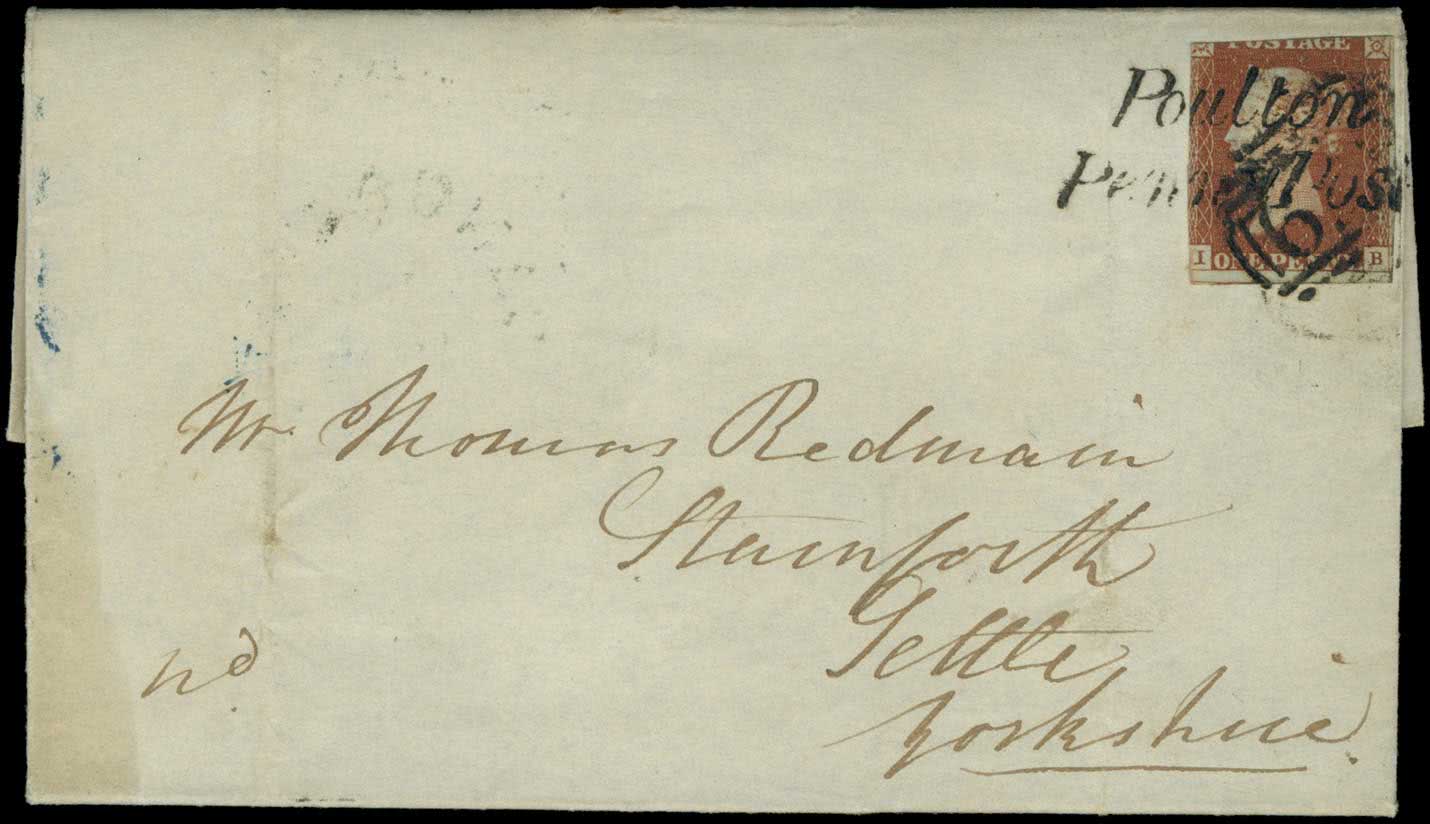 POSTAGE
Poulton
Penny Post
I ONE PENNY B
Mr. Thomas Redmain
Stainforth
Settle
Yorkshire.
pd